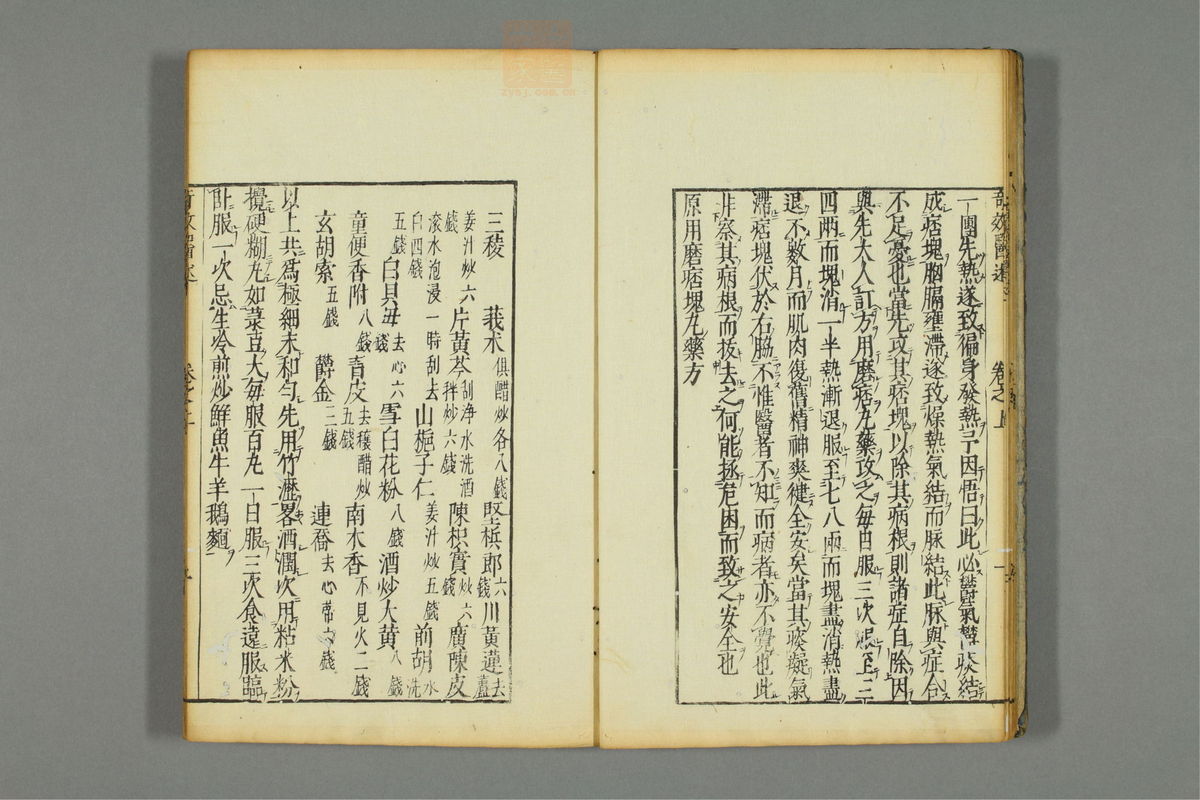 奇效醫述 卷之上
一團先熱遂致徧身發熱予因悟曰此必鬱氣鬱痰結
成痞塊胸膈壅滯遂致燥熱氣結而脉結此脉與症合
不足憂也當先攻其痞塊以除其病根則諸症自除因
與先大人訂方用磨痞丸藥攻之每日服三次服至三
四兩而塊消一半熱漸退服至七八兩而塊盡消熱盡
退不數月而肌肉復舊精神爽健全安矣當其痰凝氣
滯痞塊伏於右脇不惟醫者不知而病者亦不覺也此
非察其病根而拔去之何能拯危困而致之安全也
原用磨痞塊丸藥方
三稜 莪朮俱醋炒各八錢 堅梹郎六錢 川黃連去蘆
姜汁炒六錢 片黃芩刮淨水洗酒拌炒六錢 陳枳實炒六錢 廣陳皮
滚水泡浸一時刮去白四錢 山梔子仁姜汁炒五錢 前胡水洗
五錢 白貝母去心六錢 雪白花粉八錢 酒炒大黃八錢
童便香附八錢 青皮去穰醋炒五錢 南木香不見火二錢
玄胡索五錢 欝金三錢 連喬去心蒂六錢
以上共爲極細末和勻先用竹瀝畧洒濕次用粘米粉
攪硬糊丸如菉豆大每服百丸一日服三次食遠服臨
卧服一次忌生冷煎炒鮮魚牛羊鵝麵
奇效醫述 卷之上
zysj.com.cn